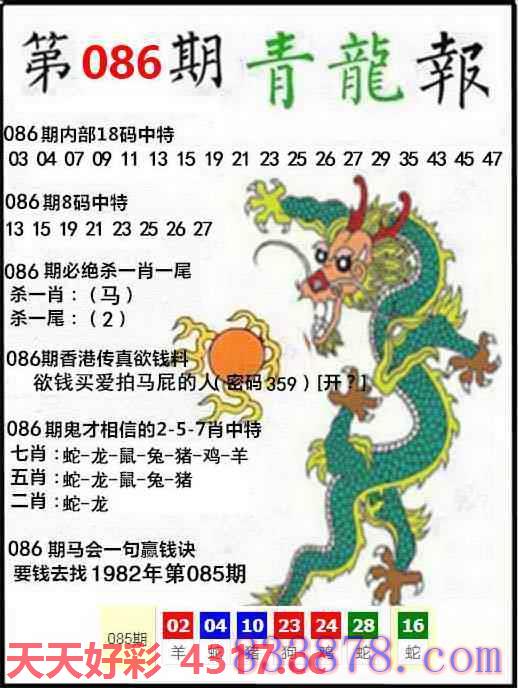 第086期青龍報
086期内部18码中特
03 04 07 09 11 13 15 19 21 23 25 26 27 29 35 43 45 47
086期8码中特
13 15 19 21 23 25 26 27
086期必绝杀一肖一尾
杀一肖：（马）
杀一尾：（2）
086期香港传真欲钱料
欲钱买爱拍马屁的人(密码359)[开?]
086期鬼才相信的2-5-7肖中特
七肖：蛇-龙-鼠-兔-猪-鸡-羊
五肖：蛇-龙-鼠-兔-猪
二肖：蛇-龙
086期马会一句赢钱诀
要钱去找1982年第085期
085期 02 04 10 23 24 28 16
羊 蛇 猪 狗 鸡 蛇 蛇
天天好彩 4317.cc
838878.com